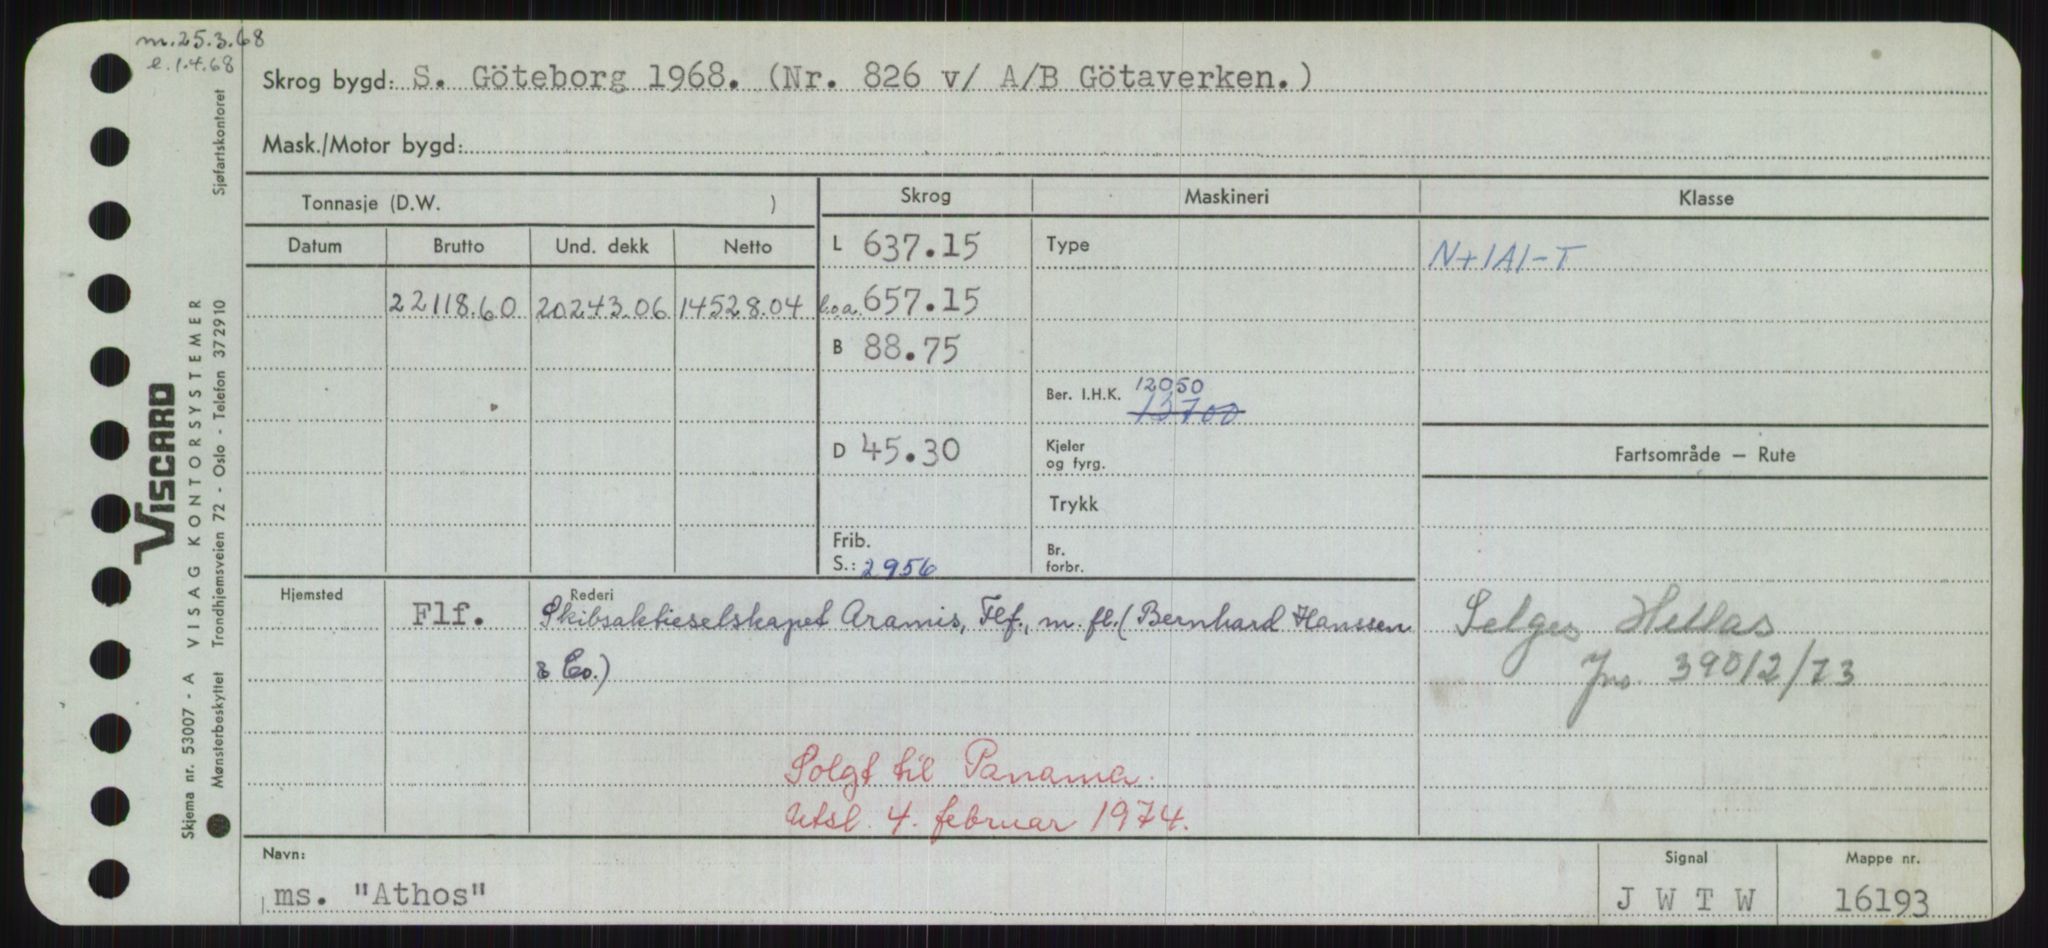 m.25.3.68
e.1.4.68
Skrog bygd: S. Göteborg 1968. (Nr. 826 v/ A/B Götaverken.)
Mask./Motor bygd:
Tonnasje (D.W. )
Skrog
Maskineri
Klasse
Datum Brutto Und. dekk Netto
L 637.15
Type
N+1A1-T
22118.60 20243.06 14528.04
l.o.a. 657.15
B 88.75
Ber. I.H.K. 12050
13700
D 45.30
Kjeler
og fyrg.
Fartsområde — Rute
Trykk
Frib.
S.: 2956
Br.
forbr.
Hjemsted
Rederi
Flf.
Skibsaktieselskapet Aramis, Flf., m. fl. (Bernhard Hanssen
& Co.)
Selges Hellas
Jnr. 39012/73
Solgt til Panama.
Utsl. 4. februar 1974.
Navn:
ms. "Athos"
Signal
J W T W
Mappe nr.
16193
VISCARD
Skjema nr. 53007 - A VISAG KONTORSYSTEMER
Mønsterbeskyttet Trondhjemsveien 72 - Oslo - Telefon 372910
Sjøfartskontoret